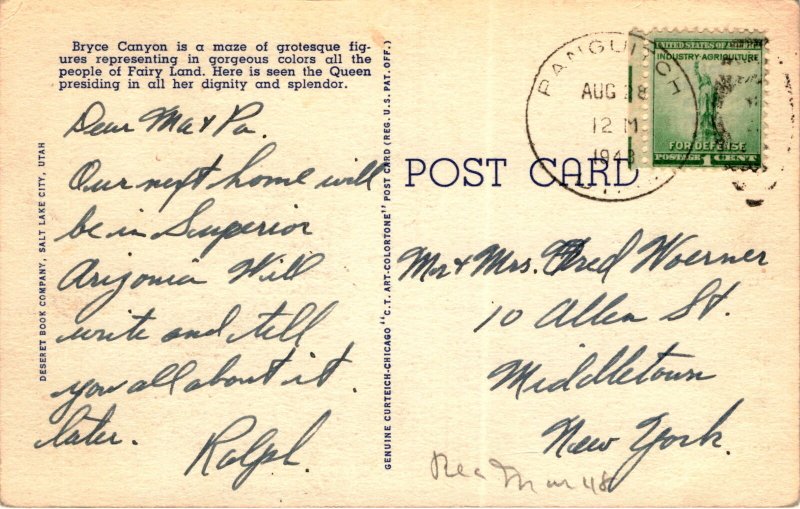 Bryce Canyon is a maze of grotesque fig-
ures representing in gorgeous colors all the
people of Fairy Land. Here is seen the Queen
presiding in all her dignity and splendor.
Dear Ma & Pa.
Our next home will
be in Superior
Arizonia Will
write and tell
you all about it
later.
Ralph.
DESERET BOOK COMPANY, SALT LAKE CITY, UTAH
GENUINE CURTEICH-CHICAGO "C.T. ART-COLORTONE" POST CARD (REG. U.S. PAT. OFF.)
POST CARD
PANGUITCH
AUG 28
12 M
1943
UNITED STATES OF AMERICA
INDUSTRY-AGRICULTURE
FOR DEFENSE
POSTAGE 1 CENT
Mr & Mrs. Fred Woerner
10 Allen St.
Middletown
New York.